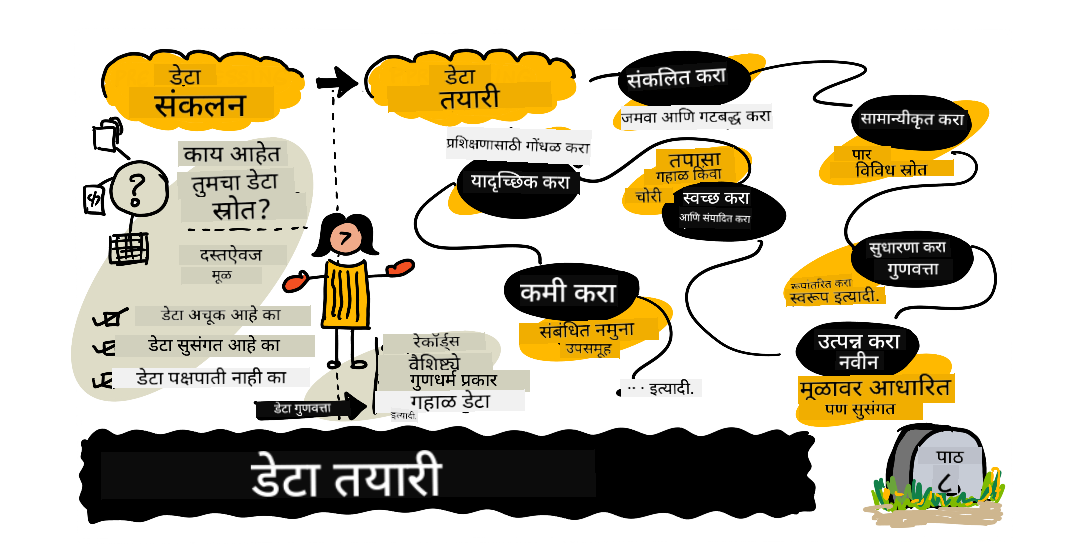 डेटा
संकलन
काय आहेत
तुमचा डेटा
स्रोत?
दस्तऐवज
मूळ
डेटा अचूक आहे का
डेटा सुसंगत आहे का
डेटा पक्षपाती नाही का
?
क
डेटा गुणवत्ता
रेकॉर्ड्स
वैशिष्ट्ये
गुणधर्म प्रकार
गहाळ डेटा
इत्यादी.
डेटा
तयारी
संकलित करा
जमवा आणि गटबद्ध करा
सामान्यीकृत करा
पार
विविध स्रोत
सुधारणा करा
गुणवत्ता
रूपांतरित करा
स्वरूप इत्यादी.
उत्पन्न करा
नवीन
मूळावर आधारित
पण सुसंगत
तपासा
गहाळ किंवा
चोरी
स्वच्छ करा
आणि संपादित करा
प्रशिक्षणासाठी गोंधळ करा
यादृच्छिक करा
कमी करा
संबंधित नमुना
उपसमूह
... इत्यादी.
डेटा तयारी
पाठ
८